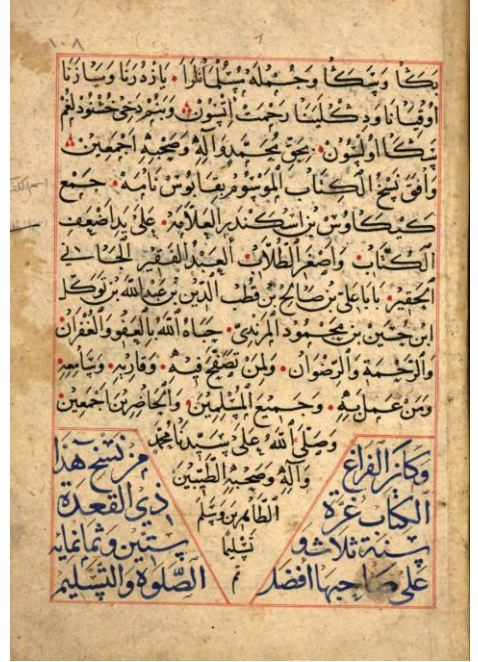 ١٠٨
بكا وسكا وجمله مسلمانلرا • يازدرنا ويازنا
اوقيانا ودكلينا رحمت اتسون وبنم دخى خشنودلغم
سكا اولسون • بحق محمد وآله وصحبه اجمعين
وافق نسخ الكتاب الموسوم بقابوس نامه • جمع
كيكاوس بن اسكندر العلامه • على يد اضعف
الكتاب • واصغر الطلاب • العبد الفقير الجاني
الحقير • بابا على بن صالح بن قطب الدين بن عبد الله بن توكل
ابن حسين بن محمود المرندى • حباه الله بالعفو والغفران
والرحمة والرضوان • ولمن تصفح فيه • وقاريه • وسامعه
ومن عمل به • وجميع المسلمين • والحاضرين اجمعين
وصلى الله على سيدنا محمد
وآله وصحبه الطيبين
الطاهرين وسلم
تسليما
تم
وكان الفراغ من نسخ هذا
الكتاب غرة ذي القعدة
سنة ثلاث و ستين وثمانمايه
على صاحبها افضل الصلوة والتسليم